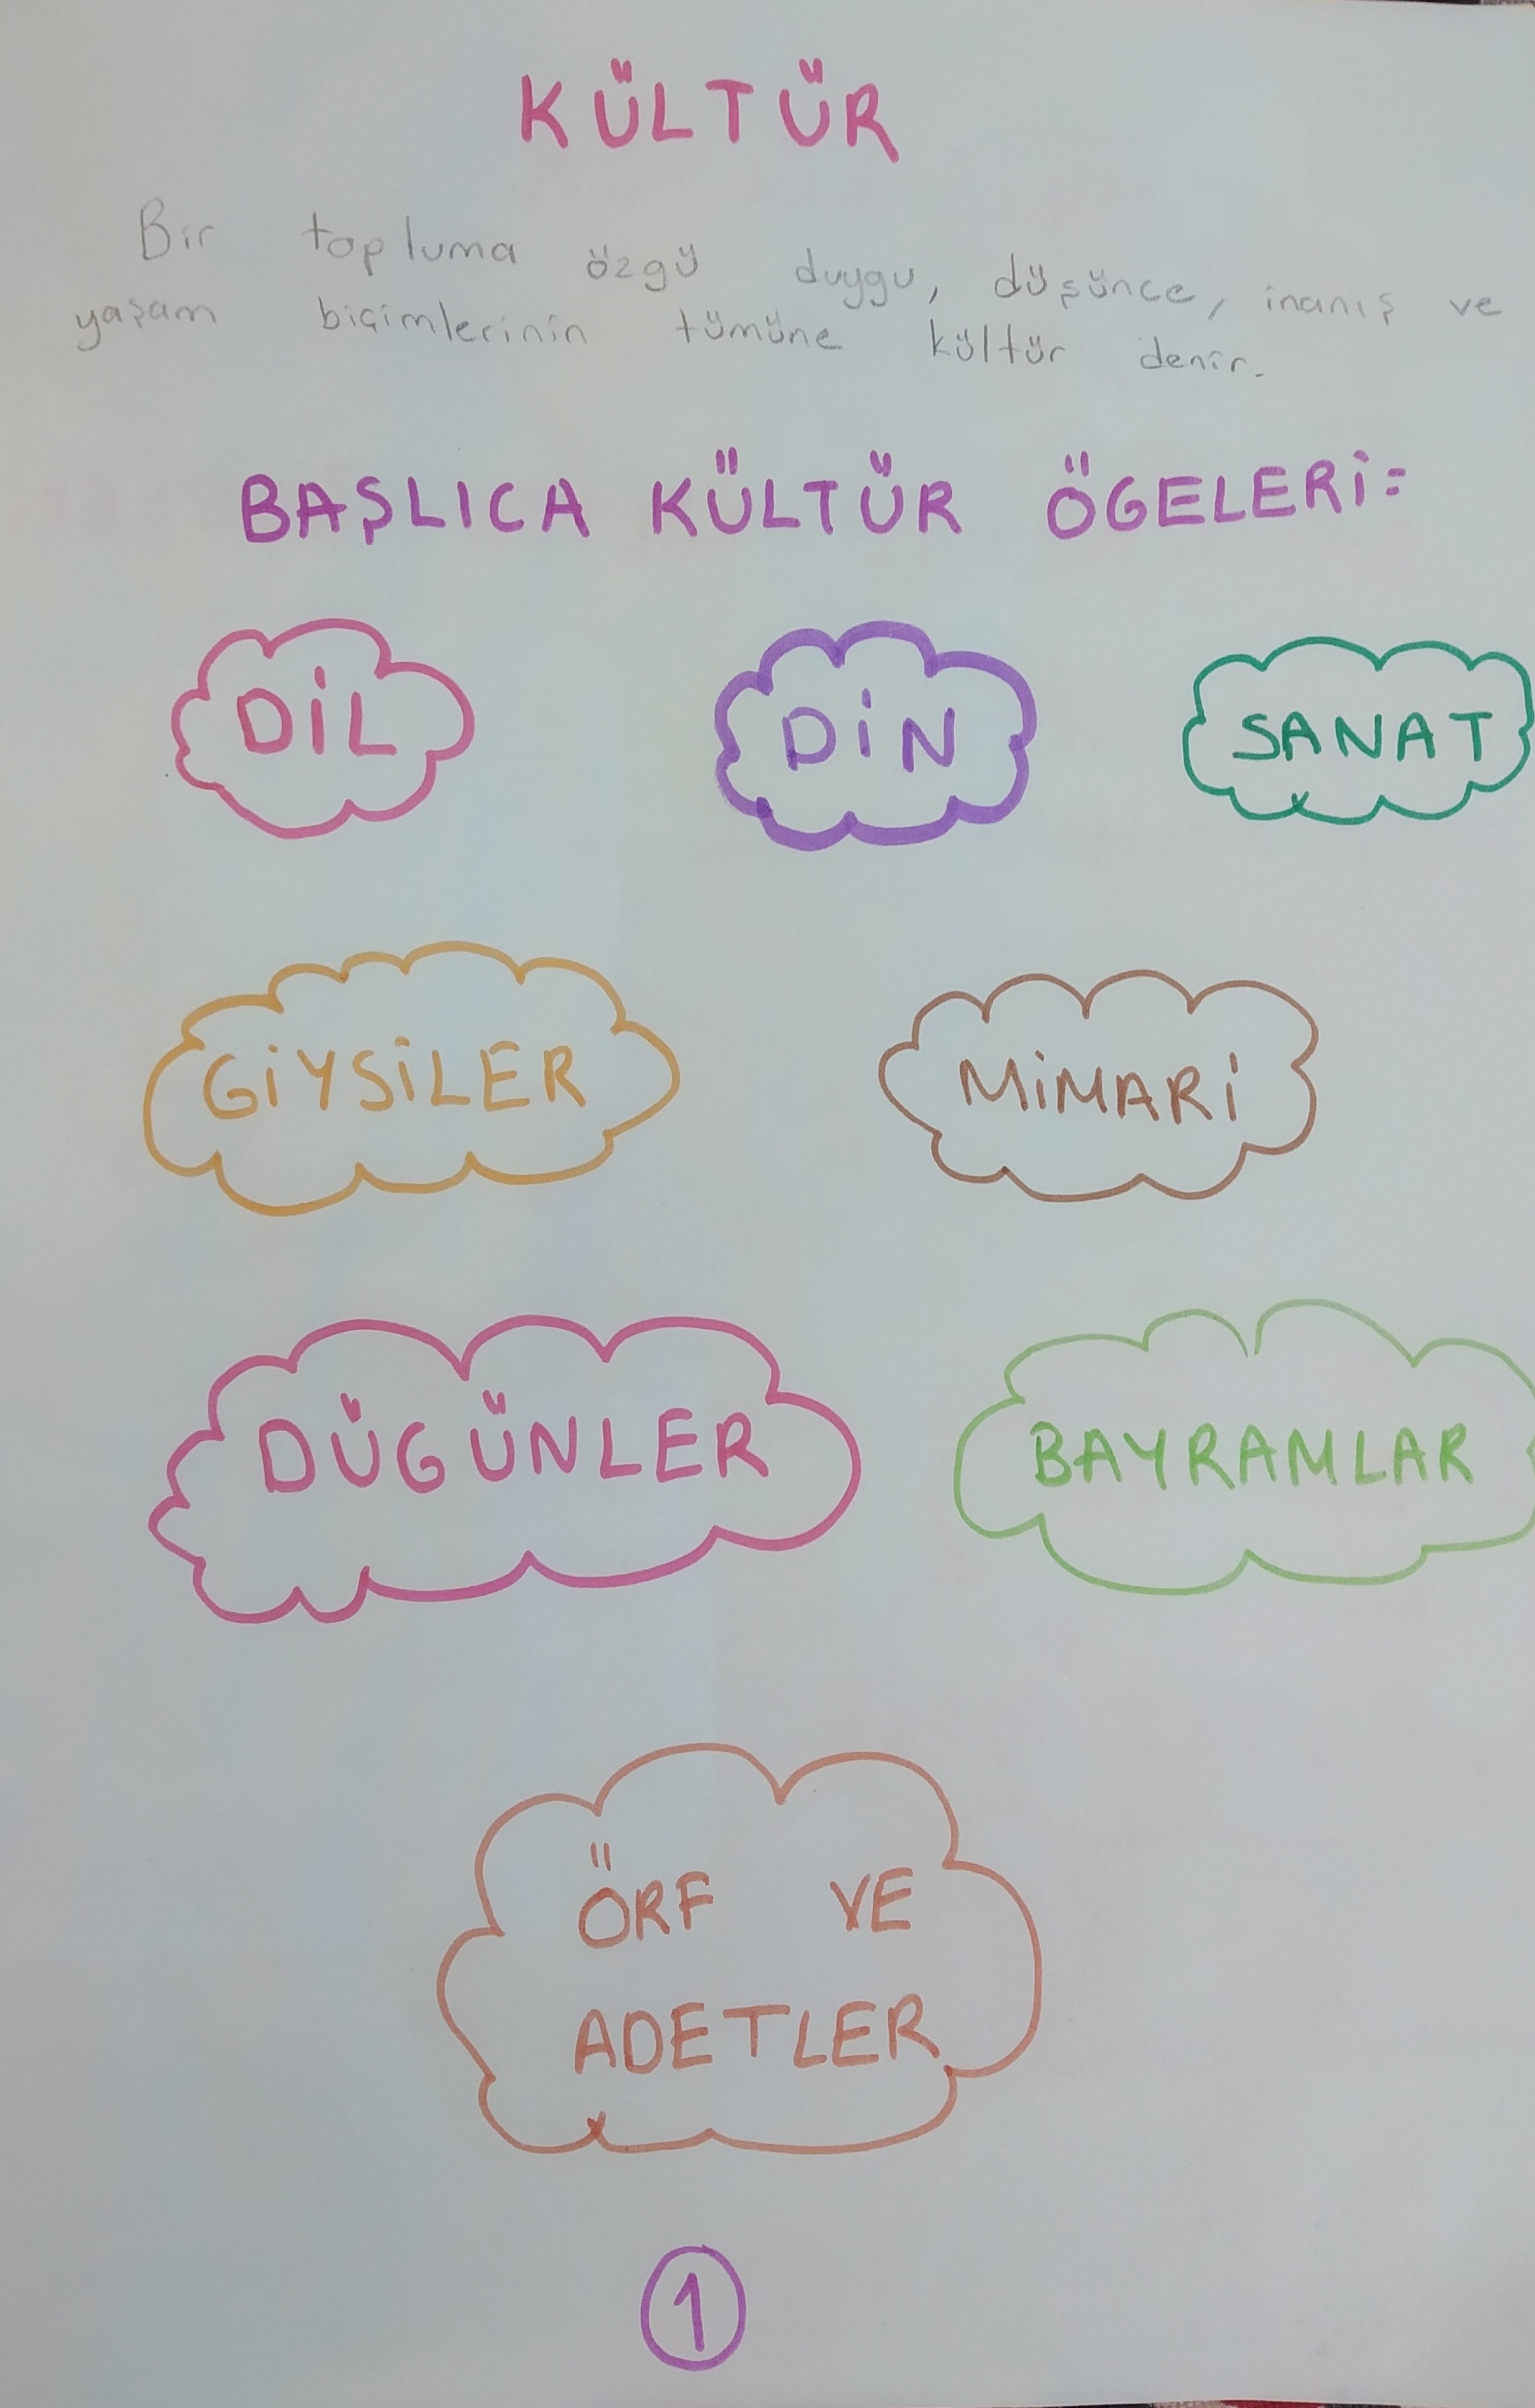 KÜLTÜR
Bir topluma özgü duygu, düşünce, inanış ve
yaşam biçimlerinin tümüne kültür denir.
BAŞLICA KÜLTÜR ÖGELERİ:
DİL DİN SANAT
GİYSİLER MİMARİ
DÜGÜNLER BAYRAMLAR
ÖRF VE
ADETLER
1